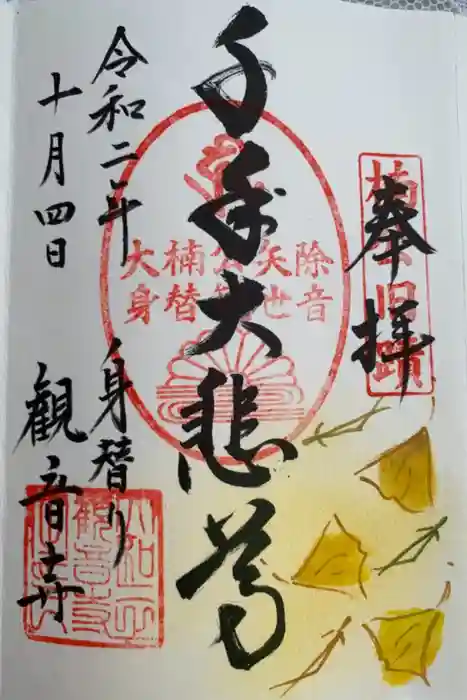 奉拝
楠公旧蹟
千手大悲尊
大楠公矢除
身替観世音
令和二年
十月四日
身替り
観音寺